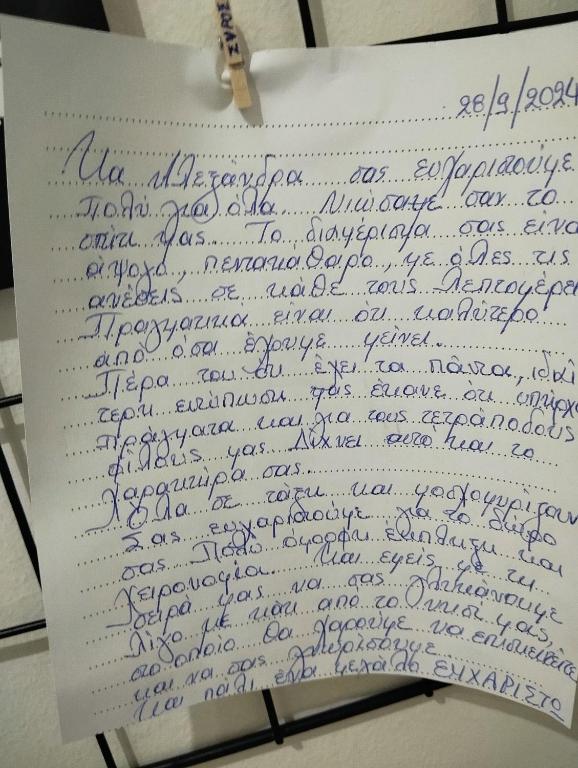 ΣΥΡΟΣ
28/9/2024
Κα Αλεξάνδρα σας ευχαριστούμε
πολύ για όλα. Νιώσαμε σαν το
σπίτι μας. Το διαμέρισμα σας είναι
άψογο, πεντακάθαρο, με όλες τις
ανέσεις σε κάθε τους λεπτομέρει
Πραγματικά είναι ότι καλύτερο
από όσα έχουμε μείνει.
Πέρα του ότι έχει τα πάντα, ιδιαί
τερη εντύπωση μας έκανε ότι υπήρχα
πράγματα και για τους τετράποδους
φίλους μας. Δίχνει αυτό και το
χαρακτήρα σας.
Όλα σε τάξη και μοσχομυρίζουν
Σας ευχαριστούμε για το δώρο
σας. Πολύ όμορφη έκπληξη και
χειρονομία. Και εμείς με τη
σειρά μας να σας γλυκάνουμε
λίγο με κάτι από το νησί μας,
στο οποίο θα χαρούμε να επισκεφθείτε
και να σας γνωρίσουμε
Και πάλι ένα μεγάλο ΕΥΧΑΡΙΣΤΩ